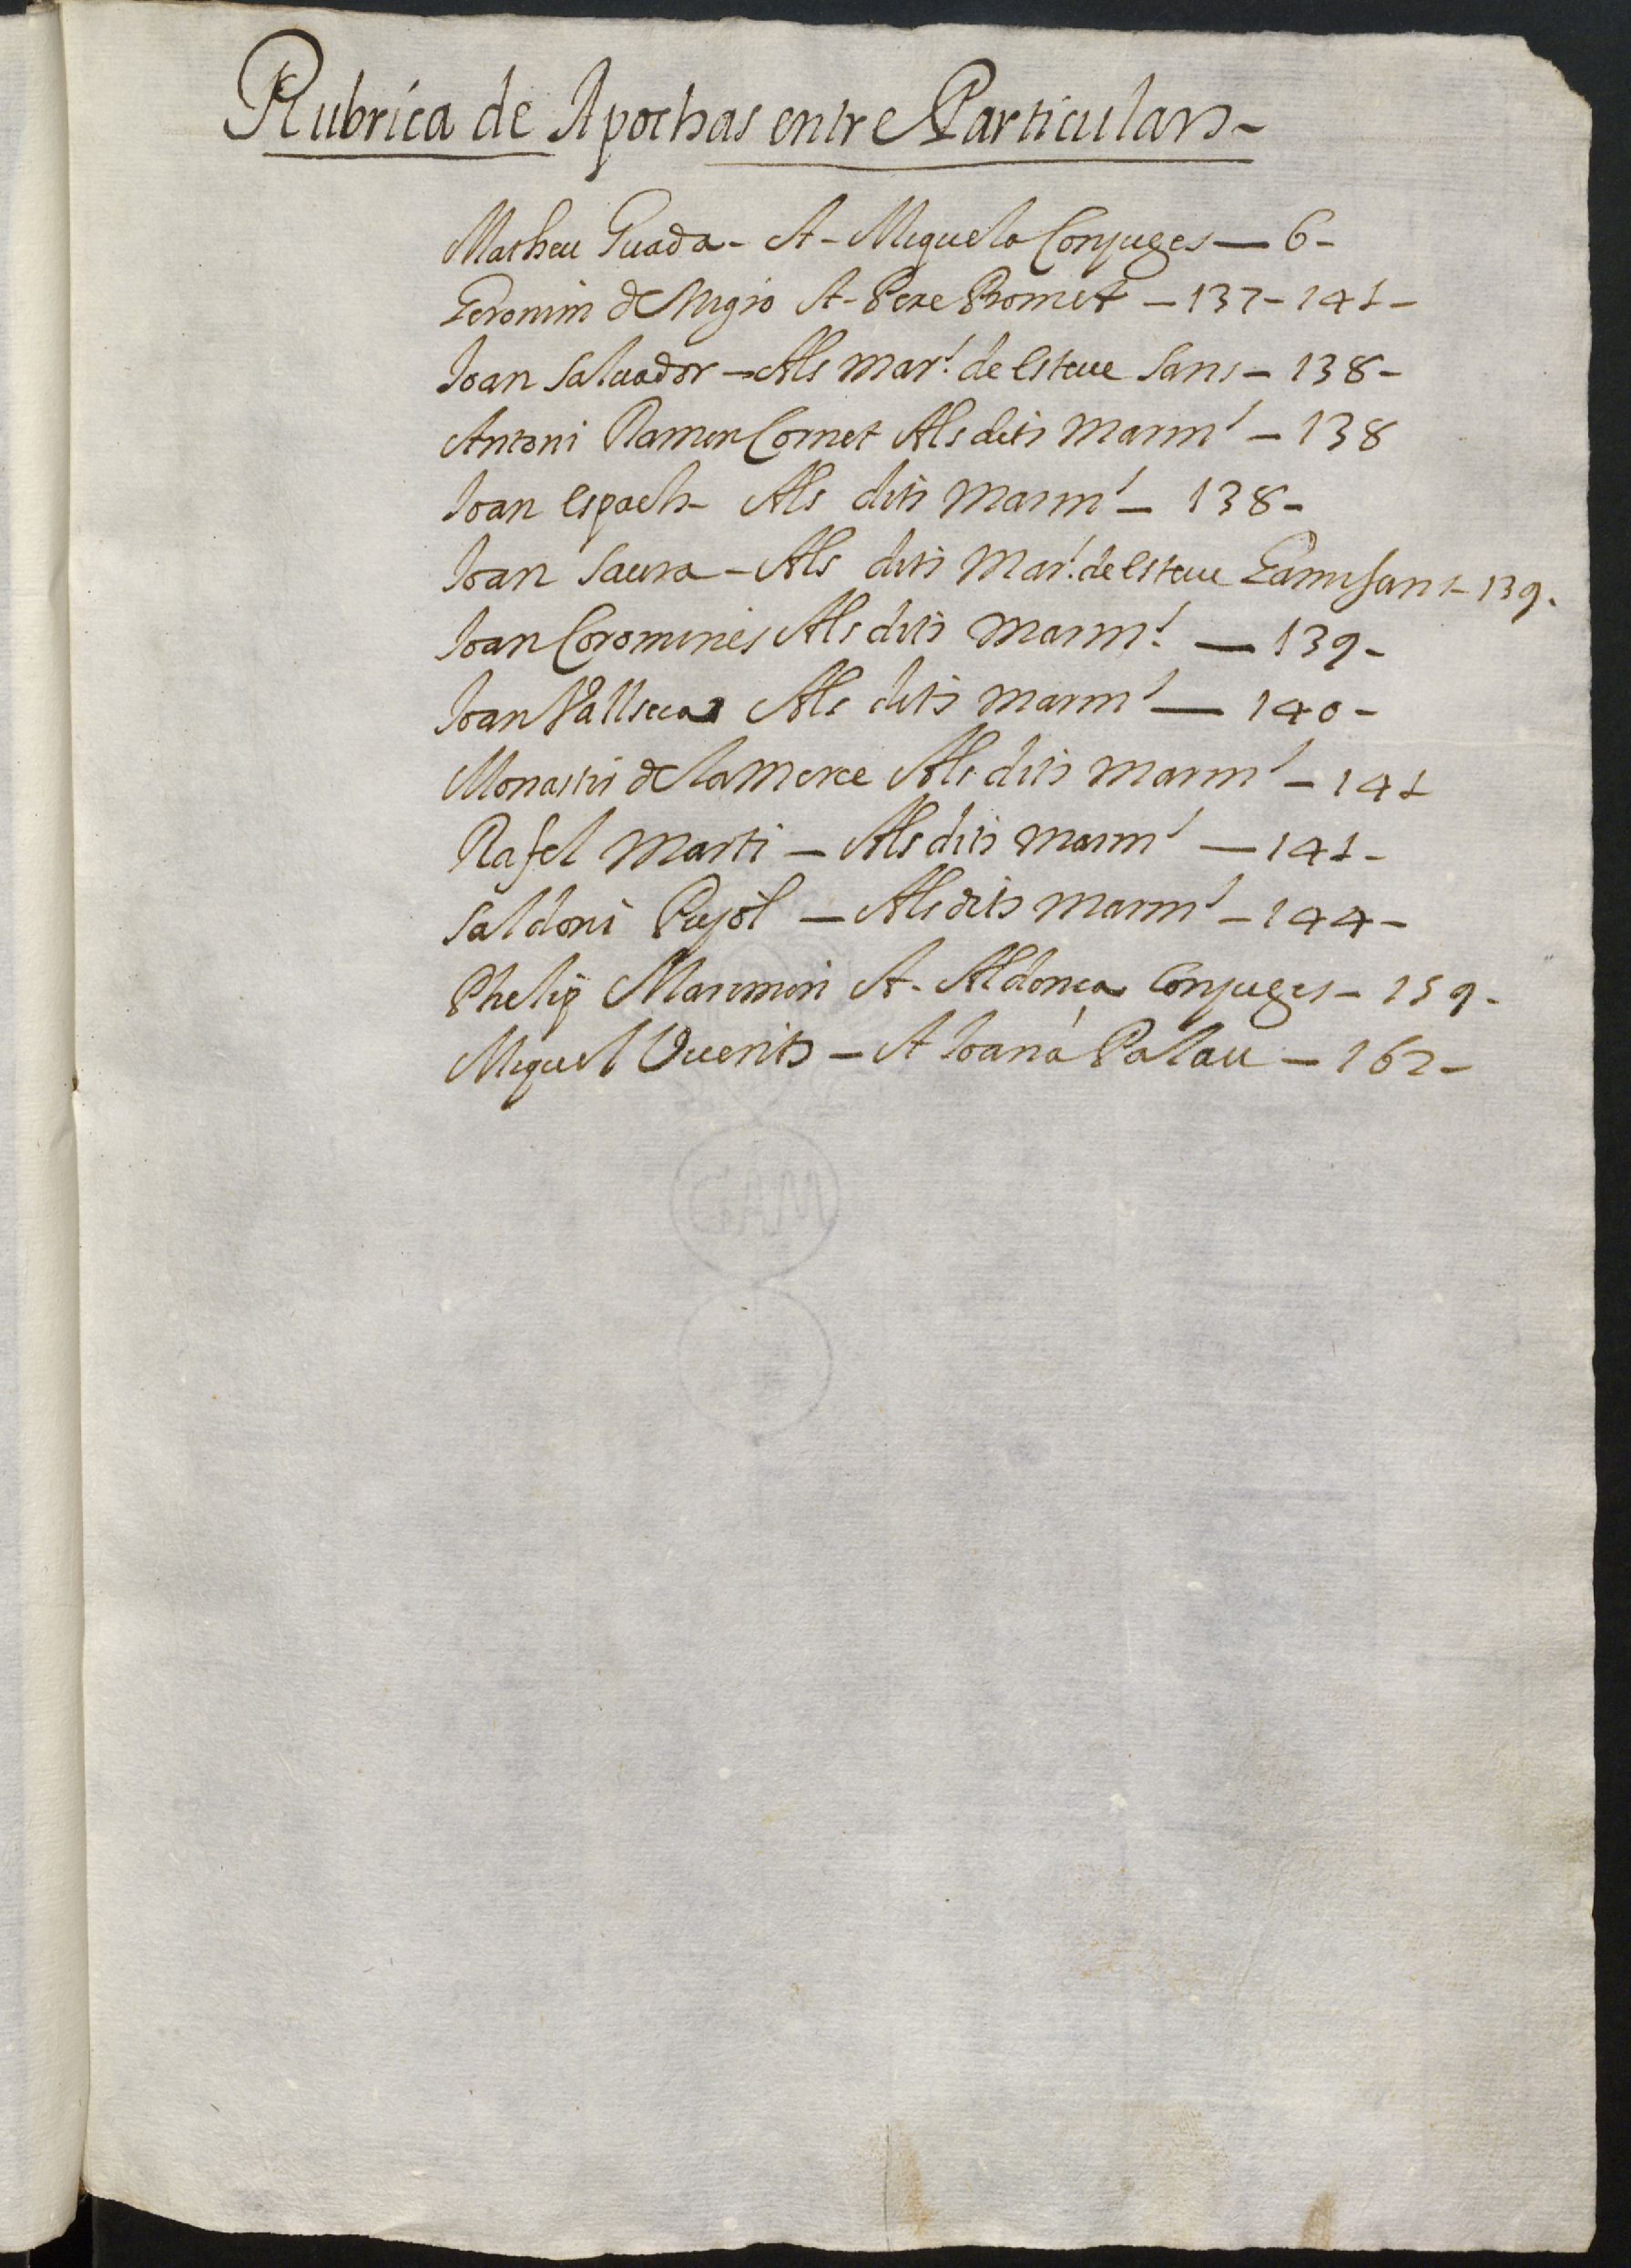 Rubrica de Apochas entre Particulars -
Matheu Guada - A - Miquela Conjuges — 6 -
Geronim de A - Pere Bromet — 137 - 141 -
Joan Saluador — Als Mar.ˢ de Esteue Sans — 138 -
Antoni Ramon Cornet Als dits Marmˢ — 138
Joan Espoch - Als dits Marmˢ — 138 -
Joan Saura - Als dits Mar.ˢ de Esteue Sans - 139.
Joan Coromines Als dits Marmˢ — 139 -
Joan Vallseca Als dits Marmˢ — 140 -
Monastir de la Merce Als dits Marmˢ — 141
Rafel Marti — Als dits Marmˢ — 141 -
Saldoni Pujol — Als dits Marmˢ — 144 -
Phelip Marimon A - Aldonça Conjuges — 159 -
Miquel — A Joana Palau — 162 -
GAM